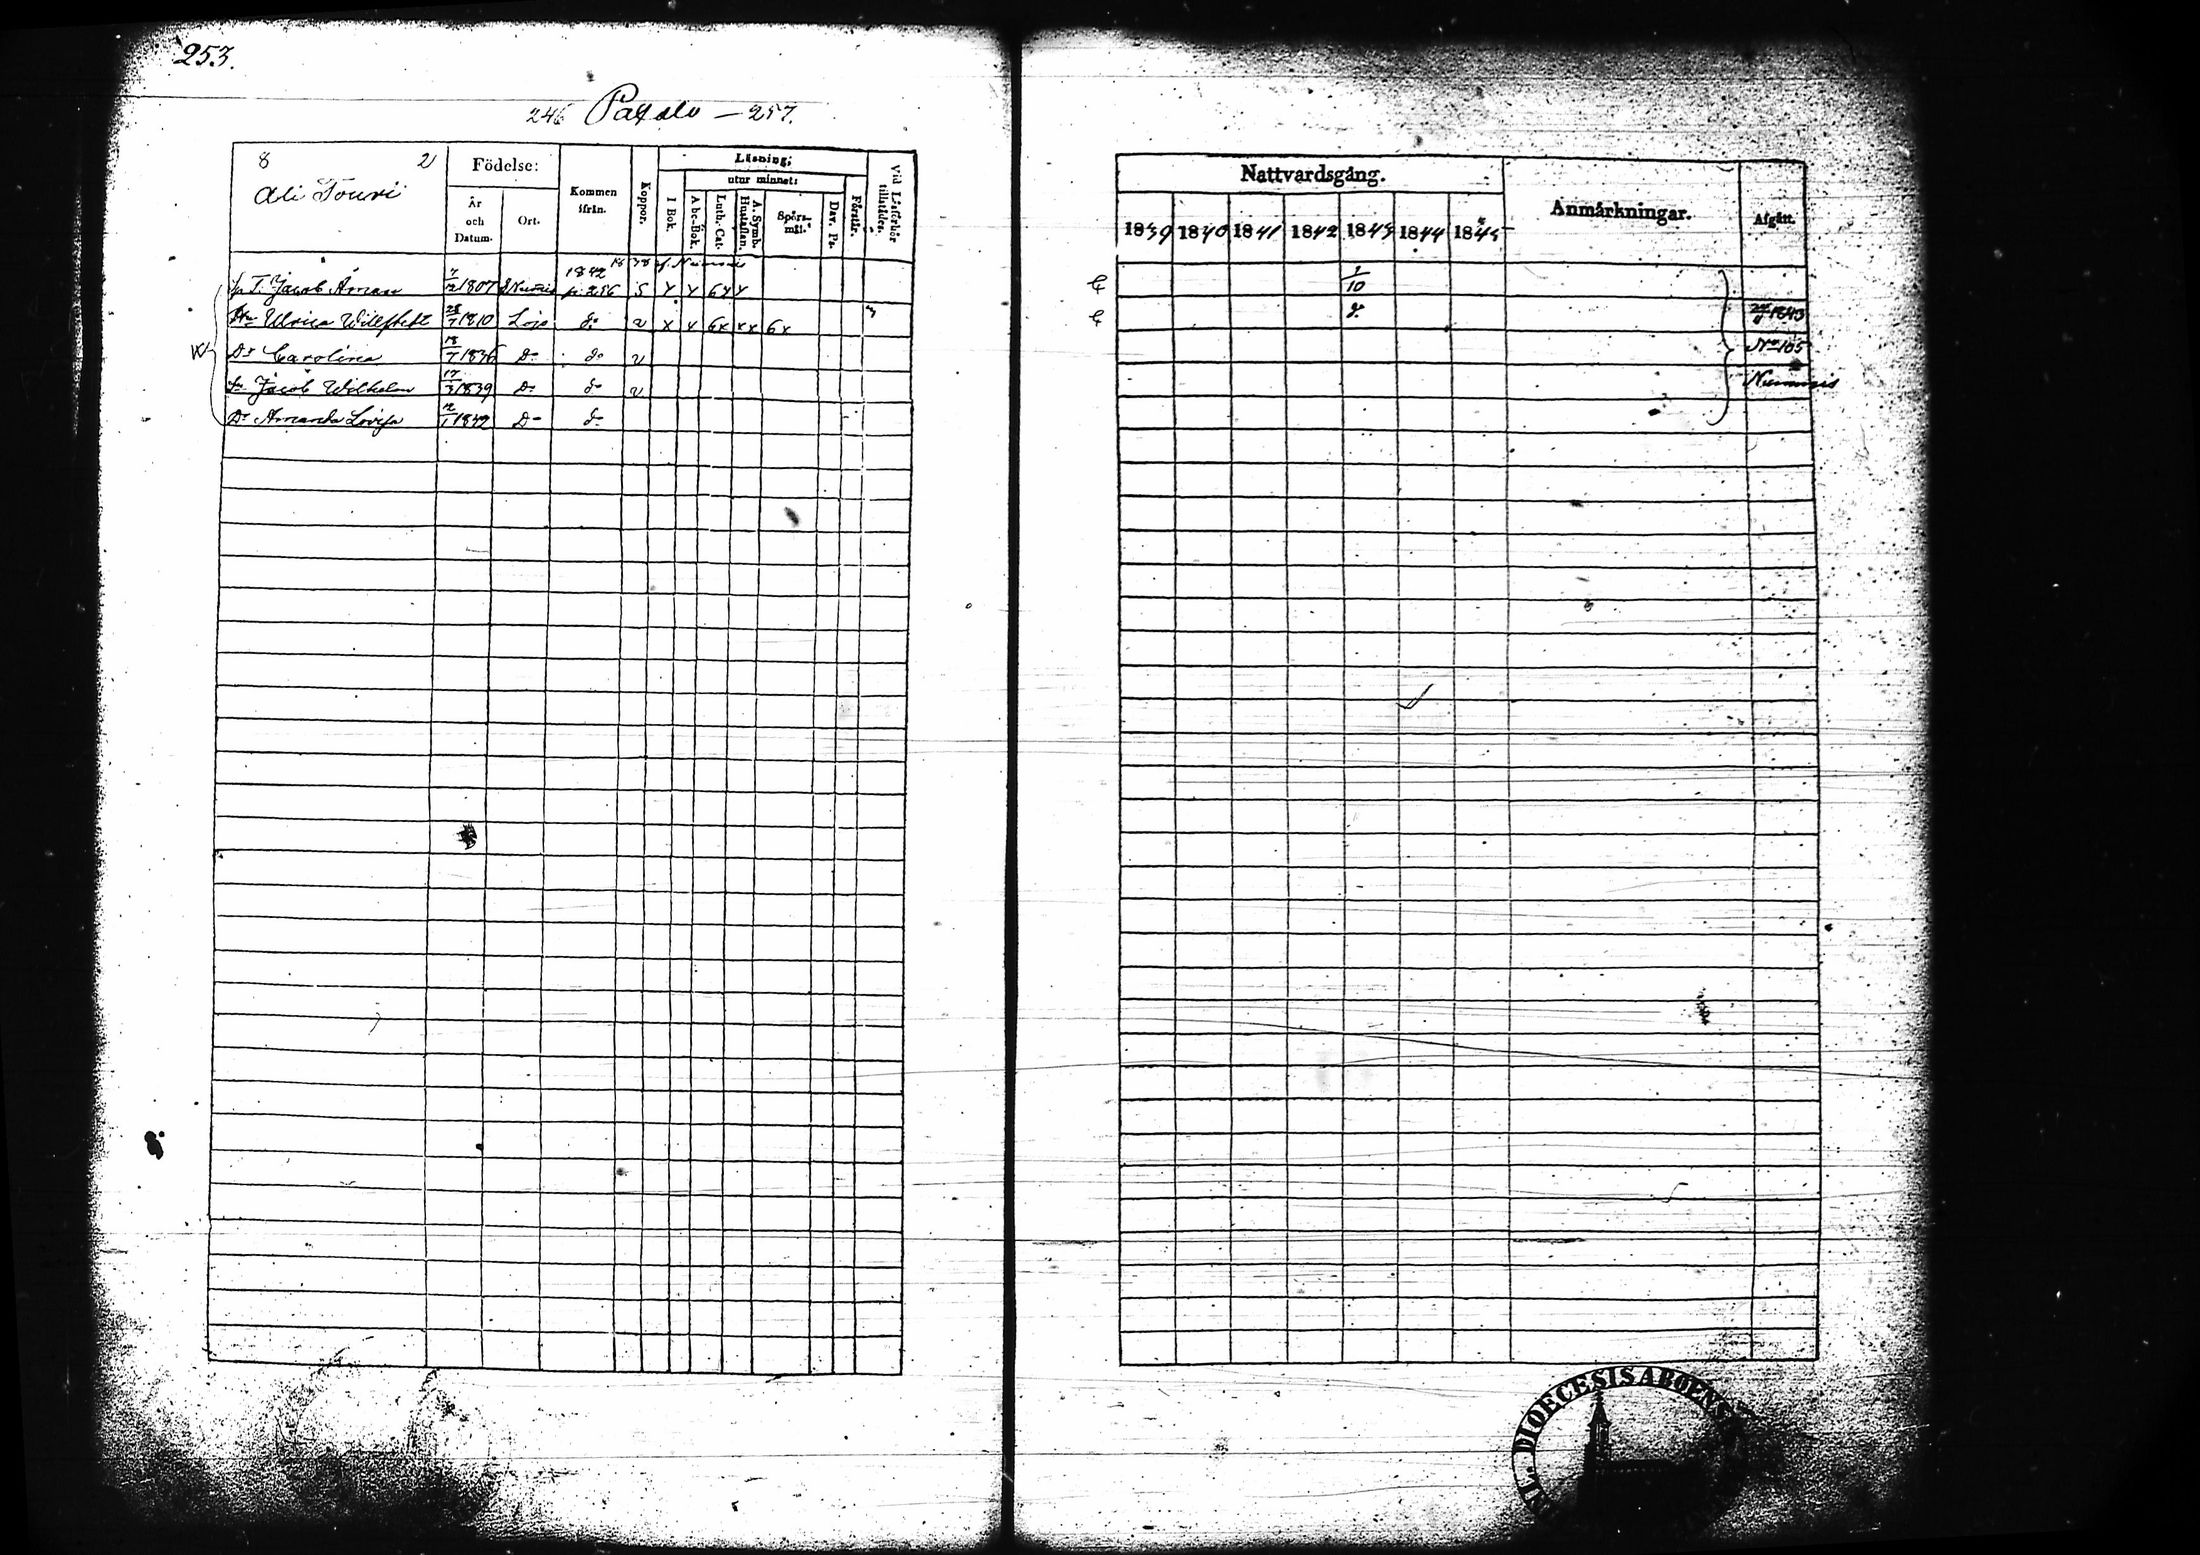 253.
246 Paxalo — 257.
8 2
Ali Touri
Födelse:
År och Datum.
Ort.
Kommen ifrån.
Koppor.
Läsning;
utur minnet:
I Bok.
Abc-Bok.
Luth. Cat.
A. Symb. Hustaflan.
Spörs-mål.
Dav. Ps.
Förstår.
Vid Läsförhör tillstädes.
1838 fr. Nummis
T. Jacob Åman 7/12 1807 Nummis 1842 p. 256 S x x 6x x
Hu Ulrica Willstedt 28/7 1810 Lojo do v x x 6x xx 6x
Dr Carolina 18/7 1836 Do do v
Sn Jacob Wilhelm 17/3 1839 Do do v
Dr Amanda Lovisa 12/1 1842 Do do
Nattvardsgång.
1839 1840 1841 1842 1843 1844 1845
Anmärkningar.
Afgått.
1/10
do
1843
No 105
Nummis
DIOECESIS ABOENS